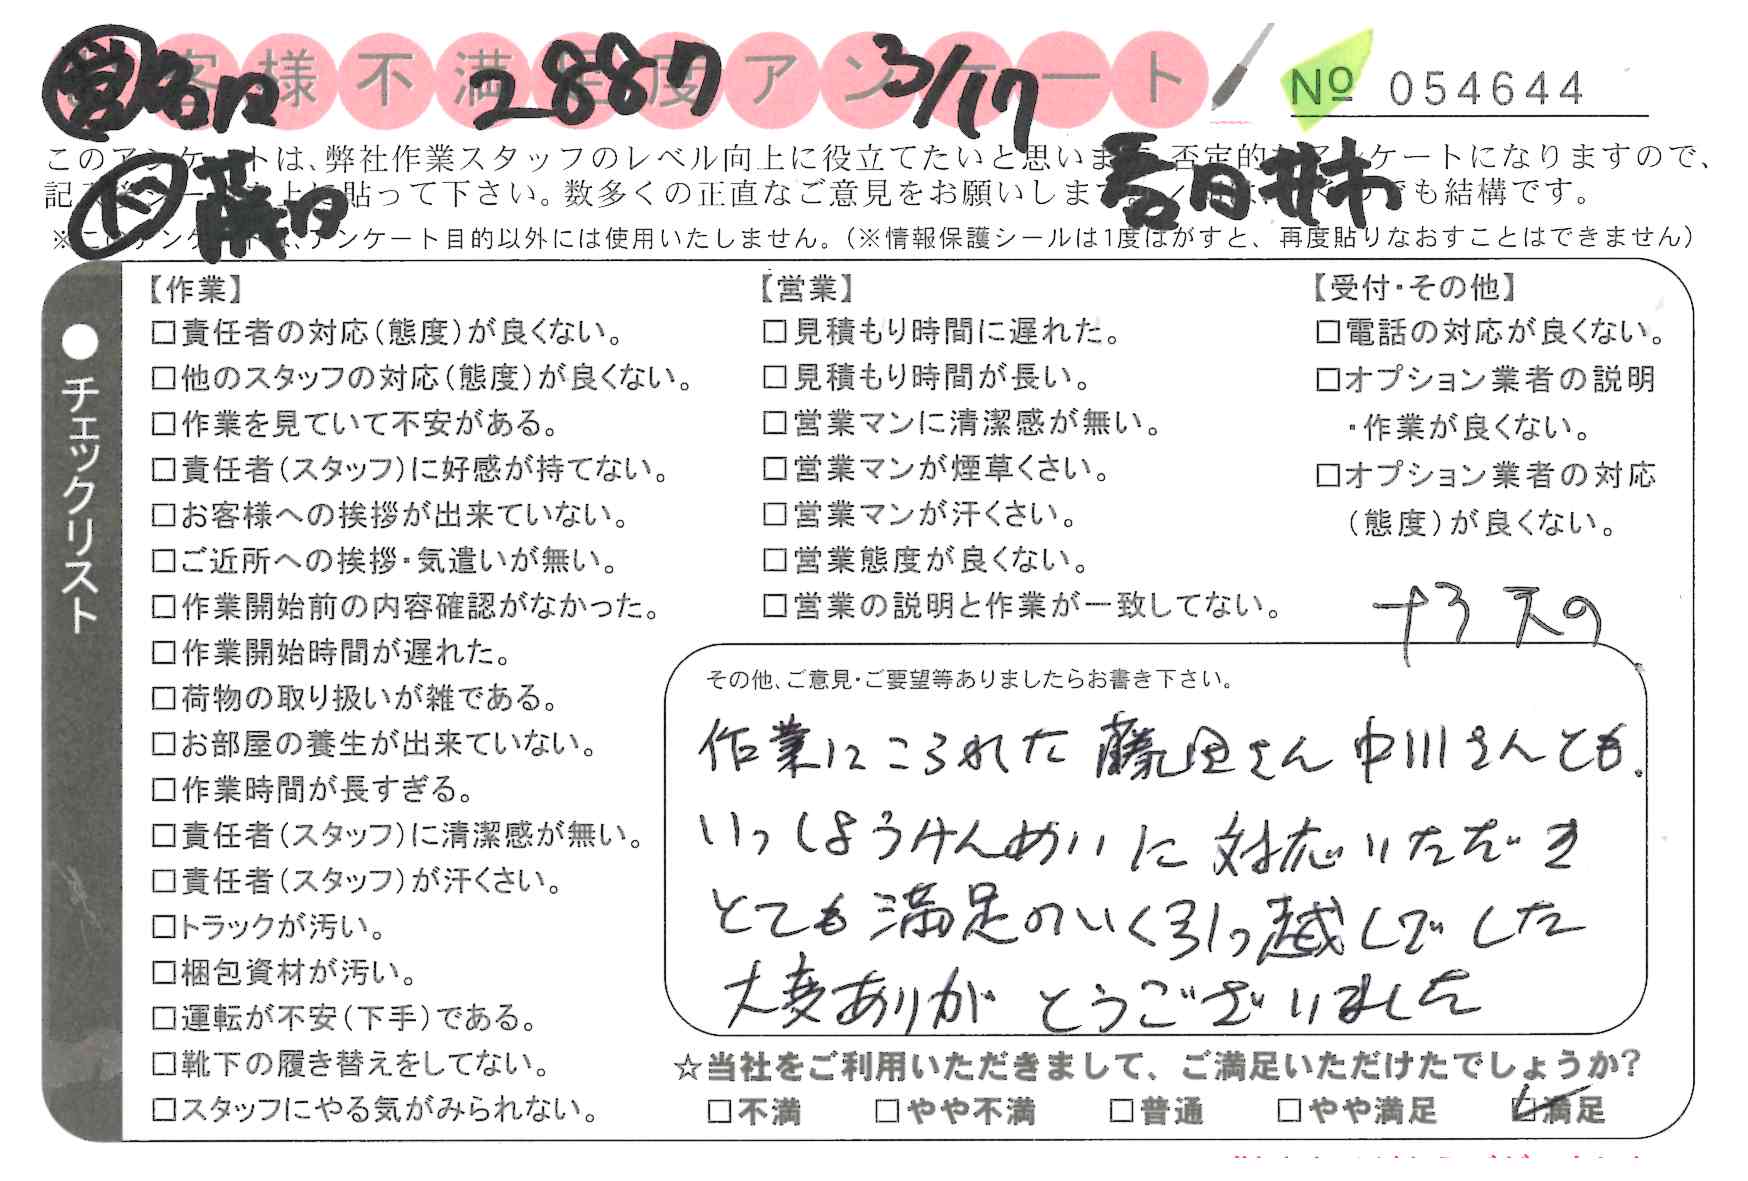 お客様不満足度アンケート
営 名口 2887 3/17
No 054644
ト 藤田 春日井市
このアンケートは、弊社作業スタッフのレベル向上に役立てたいと思います。否定的なアンケートになりますので、
貼って下さい。数多くの正直なご意見をお願いします も結構です。
アンケート目的以外には使用いたしません。(※情報保護シールは1度はがすと、再度貼りなおすことはできません)
●チェックリスト
【作業】
□責任者の対応(態度)が良くない。
□他のスタッフの対応(態度)が良くない。
□作業を見ていて不安がある。
□責任者(スタッフ)に好感が持てない。
□お客様への挨拶が出来ていない。
□ご近所への挨拶・気遣いが無い。
□作業開始前の内容確認がなかった。
□作業開始時間が遅れた。
□荷物の取り扱いが雑である。
□お部屋の養生が出来ていない。
□作業時間が長すぎる。
□責任者(スタッフ)に清潔感が無い。
□責任者(スタッフ)が汗くさい。
□トラックが汚い。
□梱包資材が汚い。
□運転が不安(下手)である。
□靴下の履き替えをしてない。
□スタッフにやる気がみられない。
【営業】
□見積もり時間に遅れた。
□見積もり時間が長い。
□営業マンに清潔感が無い。
□営業マンが煙草くさい。
□営業マンが汗くさい。
□営業態度が良くない。
□営業の説明と作業が一致してない。
【受付・その他】
□電話の対応が良くない。
□オプション業者の説明
・作業が良くない。
□オプション業者の対応
(態度)が良くない。
その他、ご意見・ご要望等ありましたらお書き下さい。
作業にこられた藤田さん中川さんとも、
いっしょうけんめいに対応いただき
とても満足のいく引っ越しでした
大変ありがとうございました
☆当社をご利用いただきまして、ご満足いただけたでしょうか?
□不満 □やや不満 □普通 □やや満足 ☑満足